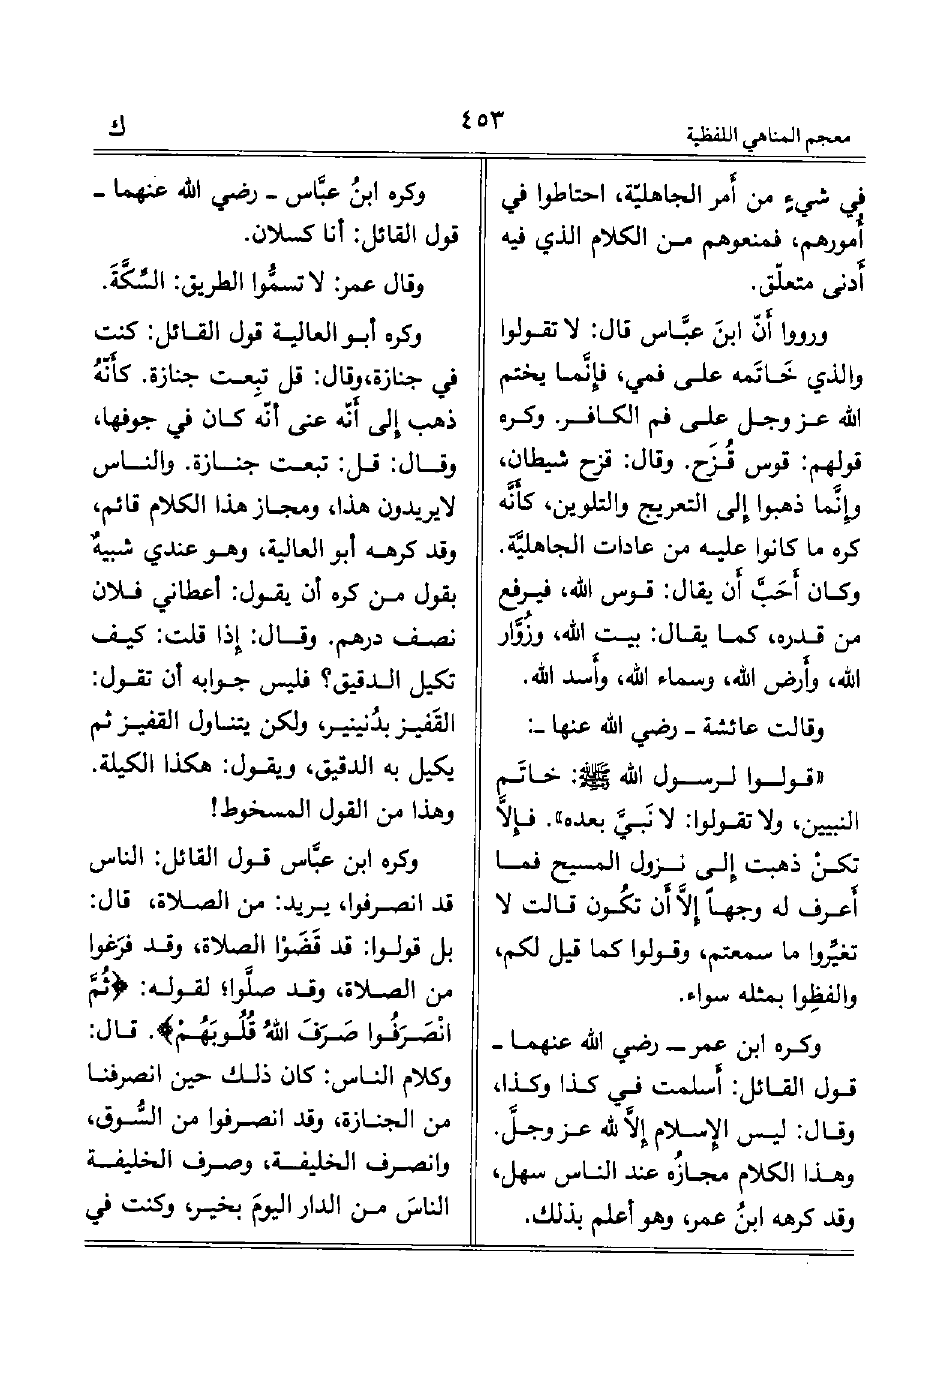 معجم المناهي اللفظية
٤٥٣
ك
في شيءٍ من أمر الجاهليّة، احتاطوا في
أمورهم، فمنعوهم من الكلام الذي فيه
أدنى متعلّق.
ورووا أنّ ابنَ عبَّاس قال: لا تقولوا
والذي خَاتَمه على فمي، فإنَّما يختم
الله عز وجل على فم الكافر. وكره
قولهم: قوس قُزَح. وقال: قزح شيطان،
وإنَّما ذهبوا إلى التعريج والتلوين، كأنَّه
كره ما كانوا عليه من عادات الجاهليَّة.
وكان أحَبَّ أن يقال: قوس الله، فيرفع
من قدره، كما يقال: بيت الله، وزُوَّار
الله، وأرض الله، وسماء الله، وأسد الله.
وقالت عائشة ـ رضي الله عنها ـ:
«قولوا لرسول الله ﷺ: خاتم
النبيين، ولا تقولوا: لا نَبيَّ بعده». فإلاَّ
تكنْ ذهبت إلى نزول المسيح فما
أعرف له وجهاً إلاَّ أن تكُون قالت لا
تغيِّروا ما سمعتم، وقولوا كما قيل لكم،
والفظِوا بمثله سواء.
وكره ابن عمر ـ رضي الله عنهما ـ
قول القائل: أسلمت في كذا وكذا،
وقال: ليس الإسلام إلاَّ لله عز وجلّ.
وهذا الكلام مجازُه عند الناس سهل،
وقد كرهه ابنُ عمر، وهو أعلم بذلك.
وكره ابنُ عبَّاس ـ رضي الله عنهما ـ
قول القائل: أنا كسلان.
وقال عمر: لا تسمُّوا الطريق: السِّكَّة.
وكره أبو العالية قول القائل: كنت
في جنازة، وقال: قل تبِعت جنازة. كأنَّهُ
ذهب إلى أنّه عنى أنّه كان في جوفها،
وقال: قل: تبعت جنازة. والناس
لايريدون هذا، ومجاز هذا الكلام قائم،
وقد كرهه أبو العالية، وهو عندي شبيهٌ
بقول من كره أن يقول: أعطاني فلان
نصف درهم. وقال: إذا قلت: كيف
تكيل الدقيق؟ فليس جوابه أن تقول:
القَفيز بدُنينير، ولكن يتناول القفيز ثم
يكيل به الدقيق، ويقول: هكذا الكيلة.
وهذا من القول المسخوط!
وكره ابن عبَّاس قول القائل: الناس
قد انصرفوا، يريد: من الصلاة، قال:
بل قولوا: قد قَضَوْا الصلاة، وقد فَرَغوا
من الصلاة، وقد صلَّوا؛ لقوله: ﴿ثُمَّ
انْصَرَفُوا صَرَفَ اللهُ قُلُوبَهُمْ﴾. قال:
وكلام الناس: كان ذلك حين انصرفنا
من الجنازة، وقد انصرفوا من السُّوق،
وانصرف الخليفة، وصرف الخليفة
الناسَ من الدار اليومَ بخير، وكنت في